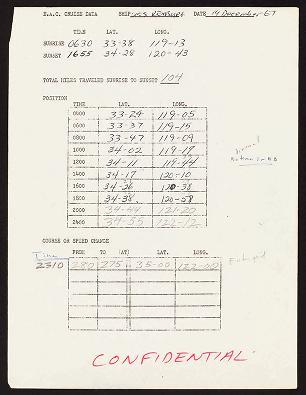 E.A.C. CRUISE DATA SHIP USS REXBURG DATE 14 December 67
TIME LAT. LONG.
SUNRISE 0630 33-38 119-13
SUNSET 1655 34-28 120-43
TOTAL MILES TRAVELED SUNRISE TO SUNSET 104
POSITION
TIME LAT. LONG.
0000 33-29 119-05
0600 33-37 119-15
0800 33-47 119-09
1000 34-02 119-17
1200 34-11 119-44
1400 34-17 120-10
1600 34-26 120-38
1800 34-38 120-58
2000 34-44 121-20
2400 34-55 122-12
COURSE OR SPEED CHANGE
Time FROM TO (AT) LAT. LONG.
2310 280 275 35-00 122-00
CONFIDENTIAL